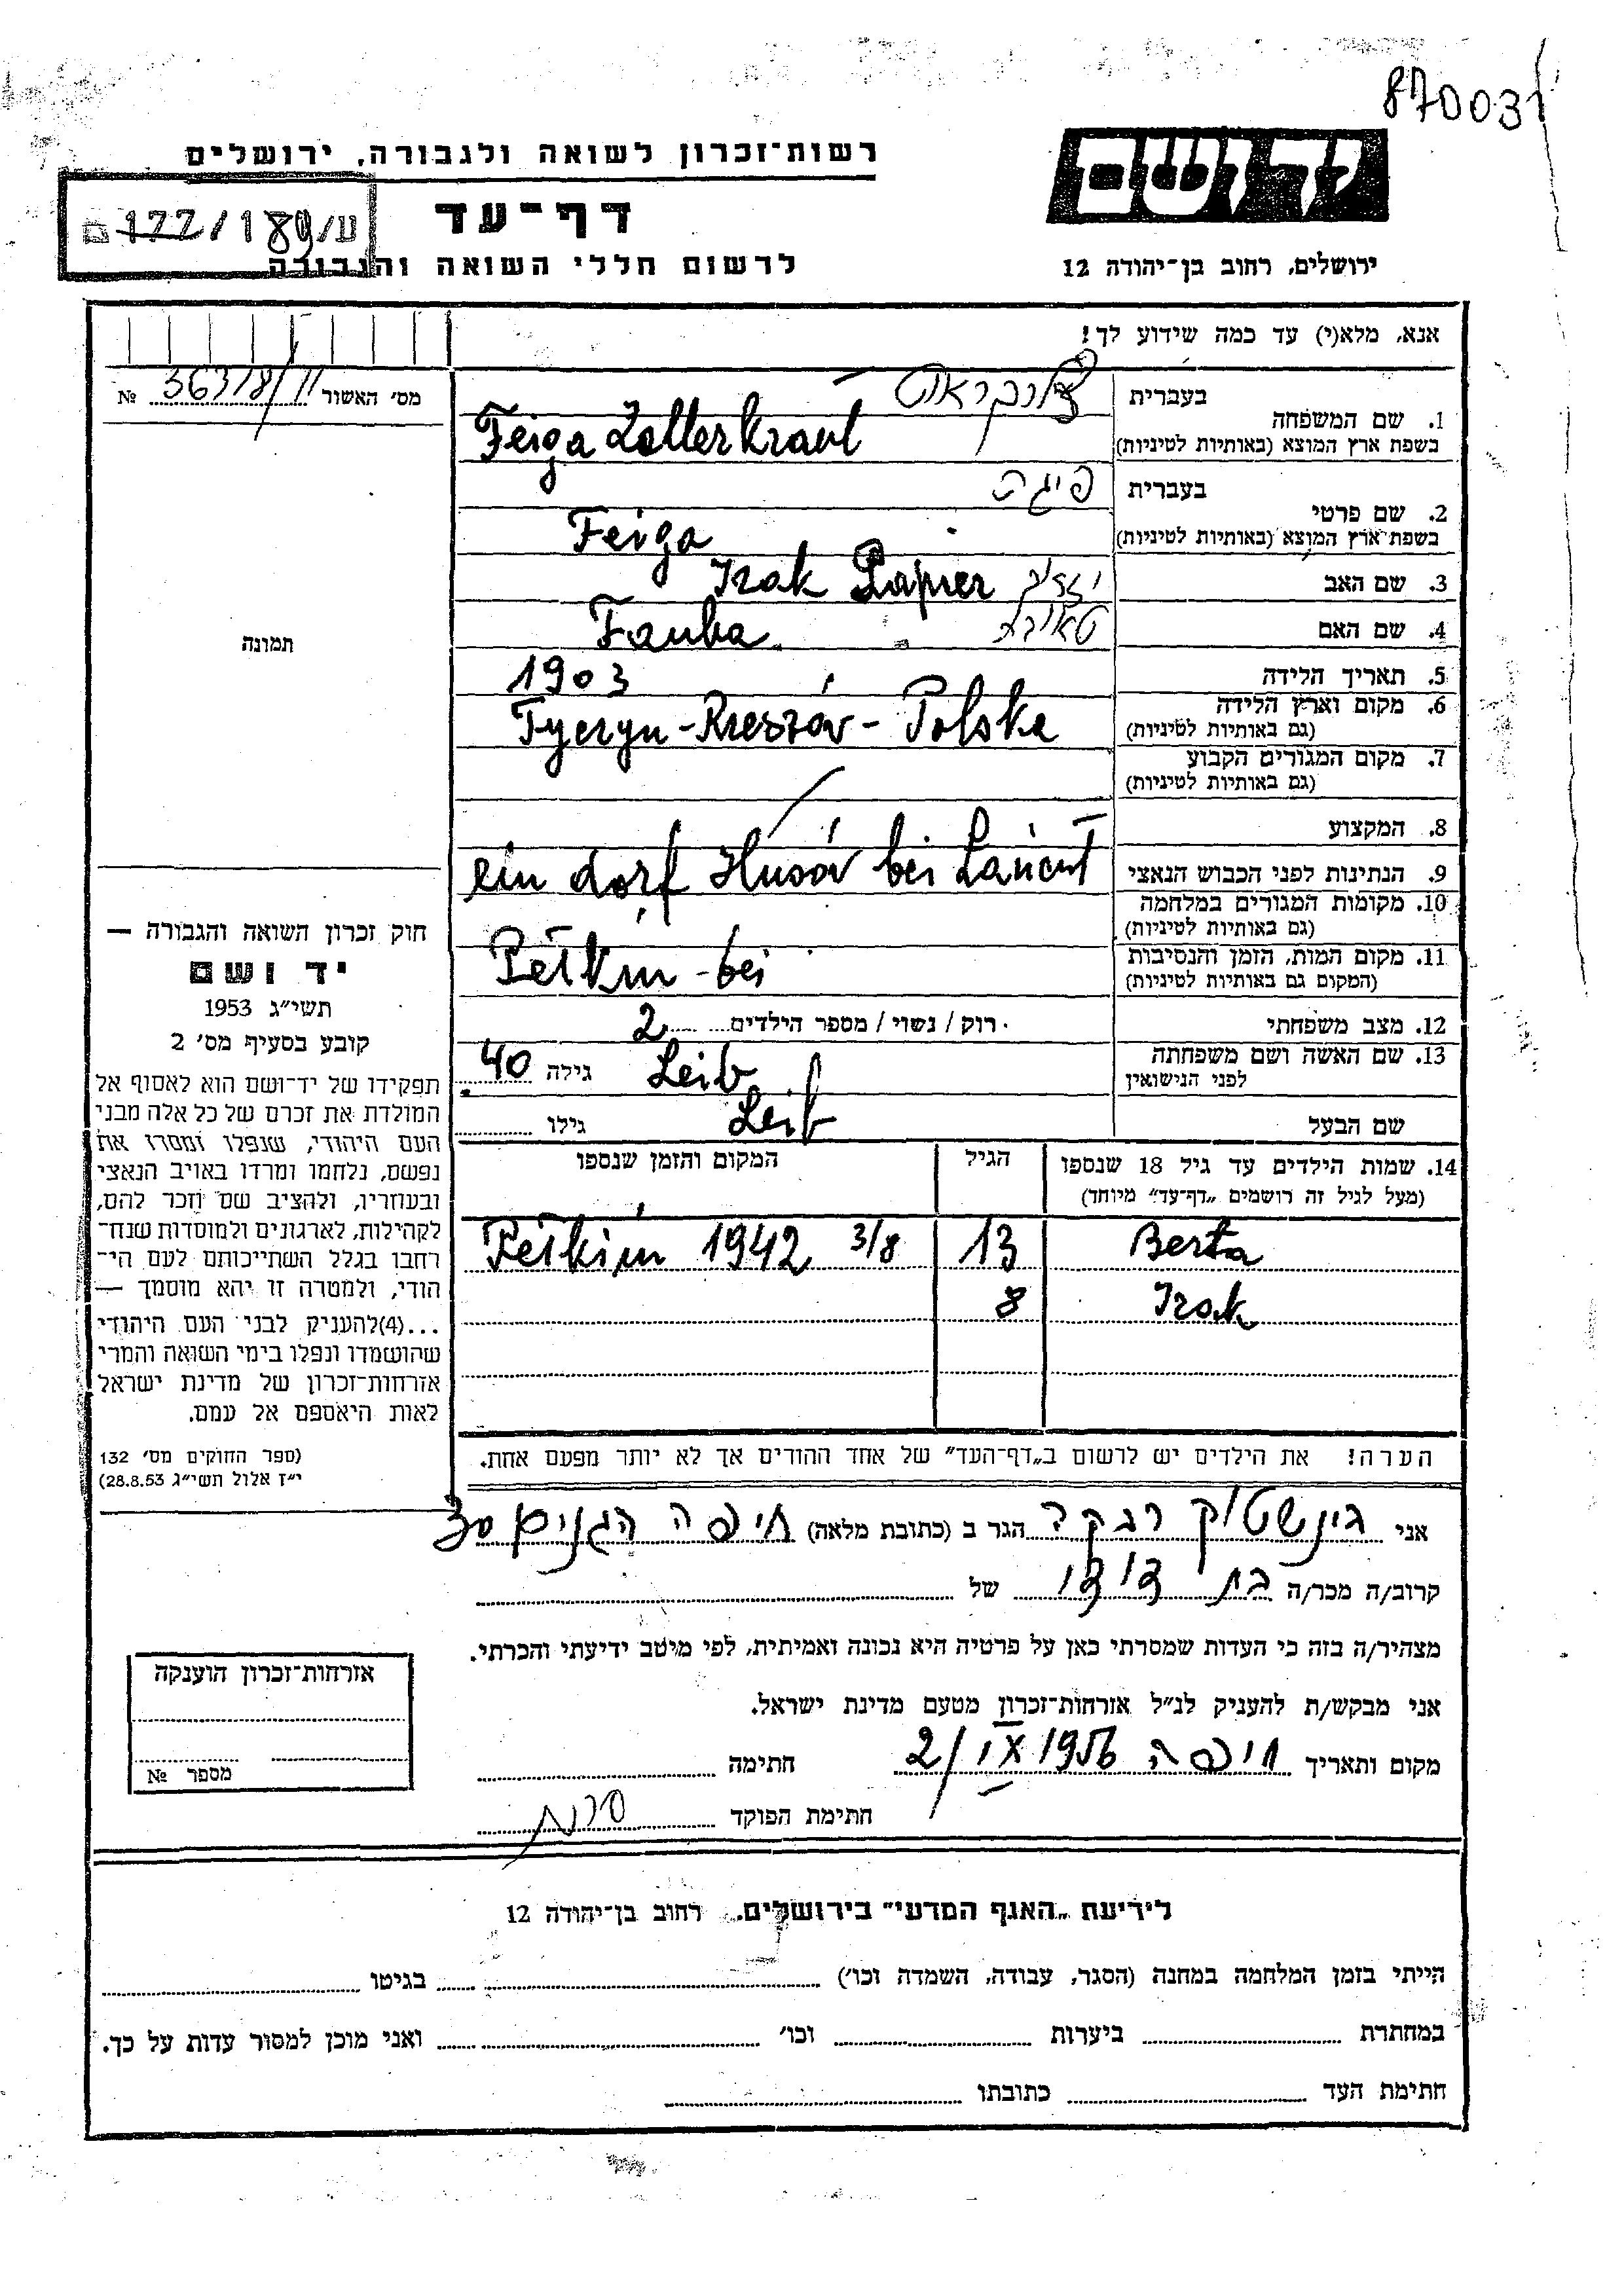 870031
רשות־זכרון לשואה ולגבורה, ירושלים
דף־עד
לרשום חללי השואה והגבורה
177/189/ע
ירושלים, רחוב בן־יהודה 12
אנא, מלא(י) עד כמה שידוע לך!
מס' האשור № 36378/11
1. שם המשפחה
בעברית
בשפת ארץ המוצא (באותיות לטיניות) Feiga Zellerkraut
2. שם פרטי
בעברית פיגה
בשפת ארץ המוצא (באותיות לטיניות) Feiga
3. שם האב Izak
4. שם האם Tauba טאובה
5. תאריך הלידה 1903
6. מקום וארץ הלידה
(גם באותיות לטיניות) Tyczyn - Rzeszów - Polska
7. מקום המגורים הקבוע
(גם באותיות לטיניות)
8. המקצוע
9. הנתינות לפני הכבוש הנאצי ein dorf Husów bei Łańcut
10. מקומות המגורים במלחמה
(גם באותיות לטיניות)
11. מקום המות, הזמן והנסיבות
(המקום גם באותיות לטיניות) Pełkin - bei
12. מצב משפחתי רוק / נשוי / מספר הילדים 2
13. שם האשה ושם משפחתה
לפני הנישואין Leib גילה 40
שם הבעל Leib גילו
14. שמות הילדים עד גיל 18 שנספו הגיל המקום והזמן שנספו
(מעל לגיל זה רושמים „דף־עד" מיוחד)
Berta 13 Pełkin 1942 3/8
Izak 8
הערה! את הילדים יש לרשום ב„דף־העד" של אחד ההורים אך לא יותר מפעם אחת.
תמונה
חוק זכרון השואה והגבורה —
יד ושם
תשי״ג 1953
קובע בסעיף מס' 2
תפקידו של יד־ושם הוא לאסוף אל
המולדת את זכרם של כל אלה מבני
העם היהודי, שנפלו ומסרו את
נפשם, נלחמו ומרדו באויב הנאצי
ובעוזריו, ולהציב שם וזכר להם,
לקהילות, לארגונים ולמוסדות שנח־
רחבו בגלל השתייכותם לעם הי־
הודי, ולמטרה זו יהא מוסמך —
...(4)להעניק לבני העם היהודי
שהושמדו ונפלו בימי השואה והמרי
אזרחות־זכרון של מדינת ישראל
לאות היאספם אל עמם.
(ספר החוקים מס' 132
י״ז אלול תשי״ג 28.8.53)
אני גינשטוק רבקה הגר ב (כתובת מלאה) חיפה הגנים 30
קרוב/ה מכר/ה בת דודו של
מצהיר/ה בזה כי העדות שמסרתי כאן על פרטיה היא נכונה ואמיתית, לפי מיטב ידיעתי והכרתי.
אני מבקש/ת להעניק לנ״ל אזרחות־זכרון מטעם מדינת ישראל.
מקום ותאריך חיפה 2/IX 1956 חתימה
חתימת הפוקד
אזרחות־זכרון הוענקה
מספר №
לידיעת „האגף המדעי" בירושלים, רחוב בן־יהודה 12
הייתי בזמן המלחמה במחנה (הסגר, עבודה, השמדה וכו') בגיטו
במחתרת ביערות וכו' ואני מוכן למסור עדות על כך.
חתימת העד כתובתו